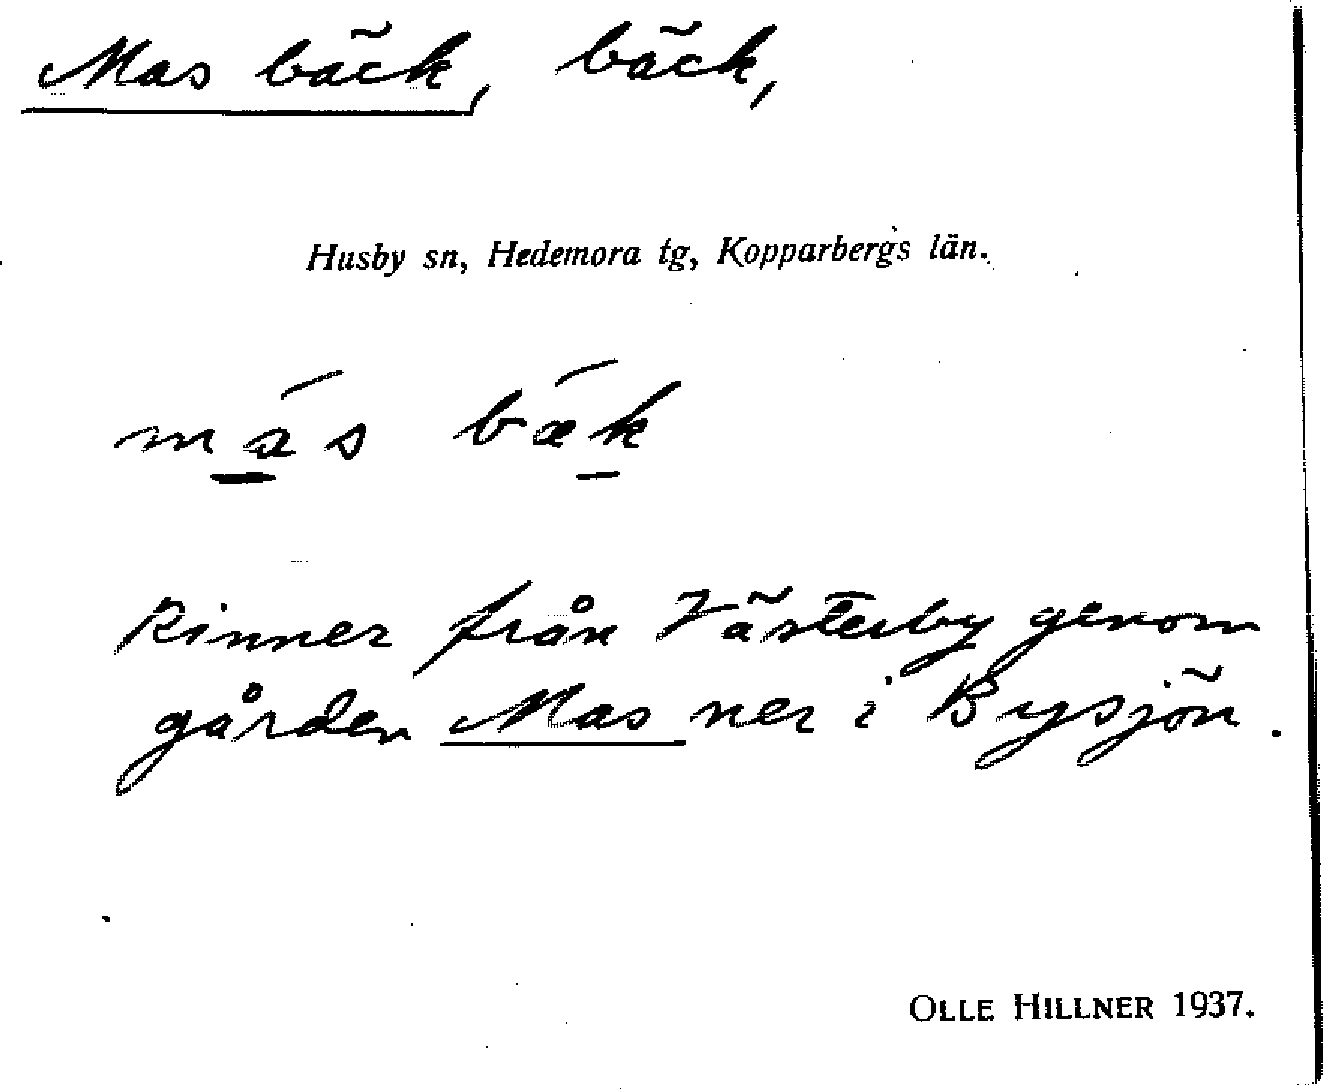 Mas bäck, bäck,
Husby sn, Hedemora tg, Kopparbergs län.
mas bæk
Rinner från Västerby genom
gården Mas ner i Bysjön.
OLLE HILLNER 1937.